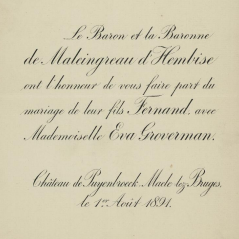 Le Baron et la Baronne
de Maleingreau d'Hembise
ont l'honneur de vous faire part du
mariage de leur fils Fernand, avec
Mademoiselle Eva Groverman.
Château de Puyenbroeck, Maele-lez-Bruges,
le 1er Août 1891.